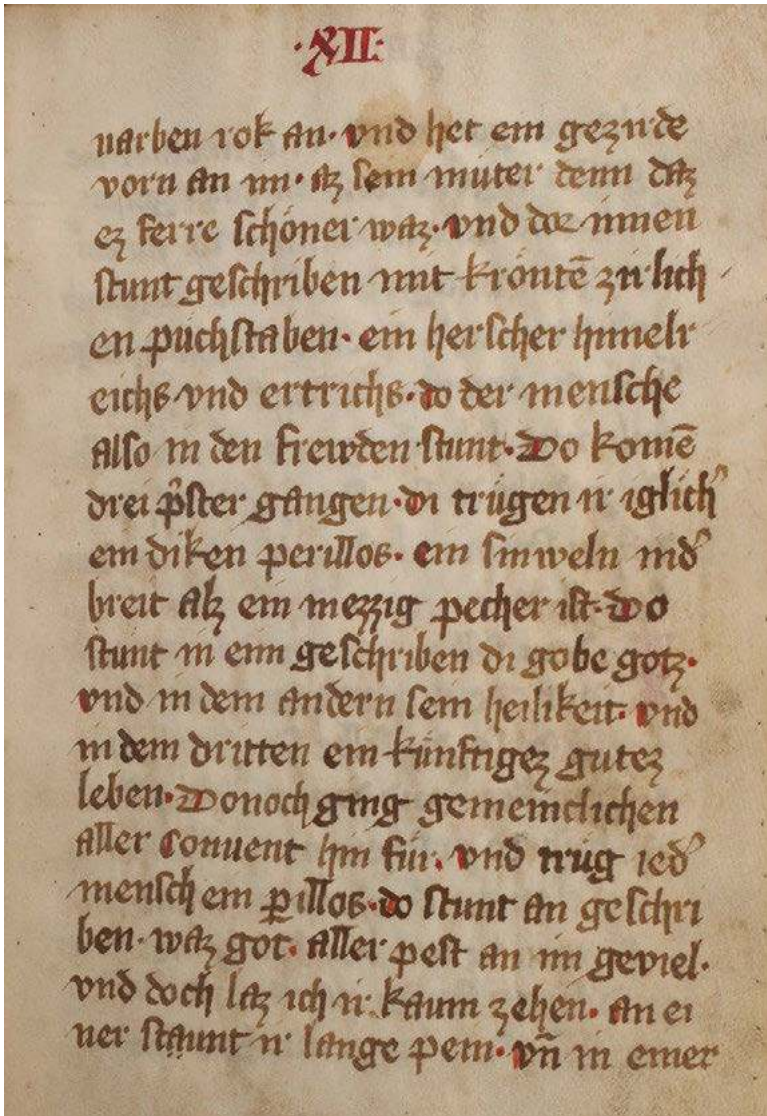 ·XII·
varben rok an· vnd het ein gezirde
vorn an im· az sein můter denn daz
ez ferre schöner waz· vnd dor innen
stunt geschriben mit krontē zirlich
en půchstaben· ein herscher himelr
eichs vnd ertrichs· do der mensche
also in den frewden stunt· Do komē
drei p̾ster gangen· di trůgen ir iglich̾
ein diken perillos· ein sinweln nid̾
breit alz ein mezzig pecher ist· Do
stunt in eim geschriben di gobe gotz·
vnd in dem andern sein heilikeit· vnd
in dem dritten ein künftigez gutez
leben· Donoch ging gemeinclichen
aller Conuent hin für· vnd trůg ied̾
mensch ein ꝑillos· do stunt an geschri
ben· waz got· aller pest an im geviel·
vnd doch laz ich ir kaum zehen· an ei
ner staunt ir lange pein· vn̄ in einer